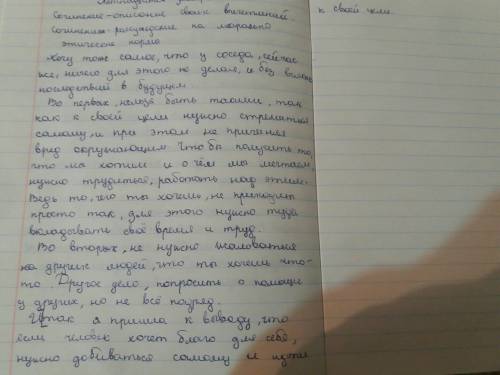 Сочинение-описание своих впечатлений
Сочинения-рассуждение на морально
этические норма
Хочу тоже самое, что у соседа, сейчас
же, ничего для этого не делая, и без
последствий в будущем.
Во первых, нельзя быть такими, так
как к своей цели нужно стремиться
самому, и при этом не причиняя
вред окружающим. Чтобы получить то,
что мы хотим и о чём мы мечтаем,
нужно трудиться, работать над этим.
Ведь то, чего ты хочешь, не приходит
просто так, для этого нужно туда
вкладывать своё время и труд.
Во вторых, не нужно жаловаться
на других людей, что ты хочешь что-
то. Другое дело, попросить о помощи
у других, но не всё подряд.
Итак я пришла к выводу, что
если человек хочет благо для себя,
нужно добиваться самому и идти
к своей цели.